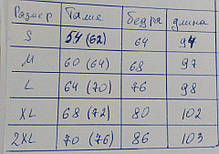 Размер Талие бедра длина
S 54 (62) 64 94
M 60 (64) 68 97
L 64 (70) 76 98
XL 68 (72) 80 102
2XL 70 (76) 86 103